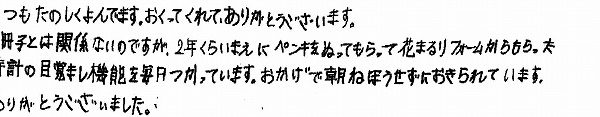 つもたのしくよんでます。おくってくれて、ありがとうございます。
冊子とは関係ないのですが、2年くらいまえにペンキをぬってもらって花まるリフォームからもらった
計の目覚まし機能を毎日つかっています。おかげで朝ねぼうせずにおきられています。
りがとうございました。